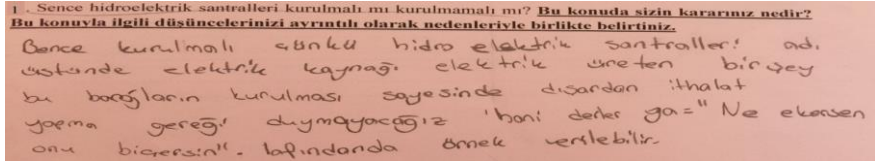 1 . Sence hidroelektrik santralleri kurulmalı mı kurulmamalı mı? Bu konuda sizin kararınız nedir?
Bu konuyla ilgili düşüncelerinizi ayrıntılı olarak nedenleriyle birlikte belirtiniz.
Bence kurulmalı çünkü hidro elektrik santralleri adı
üstünde elektrik kaynağı elektrik üreten bir şey
bu barajların kurulması sayesinde dışardan ithalat
yapma gereği duymayacağız 'hani derler ya=" Ne ekersen
onu biçersin". lafındanda örnek verilebilir.